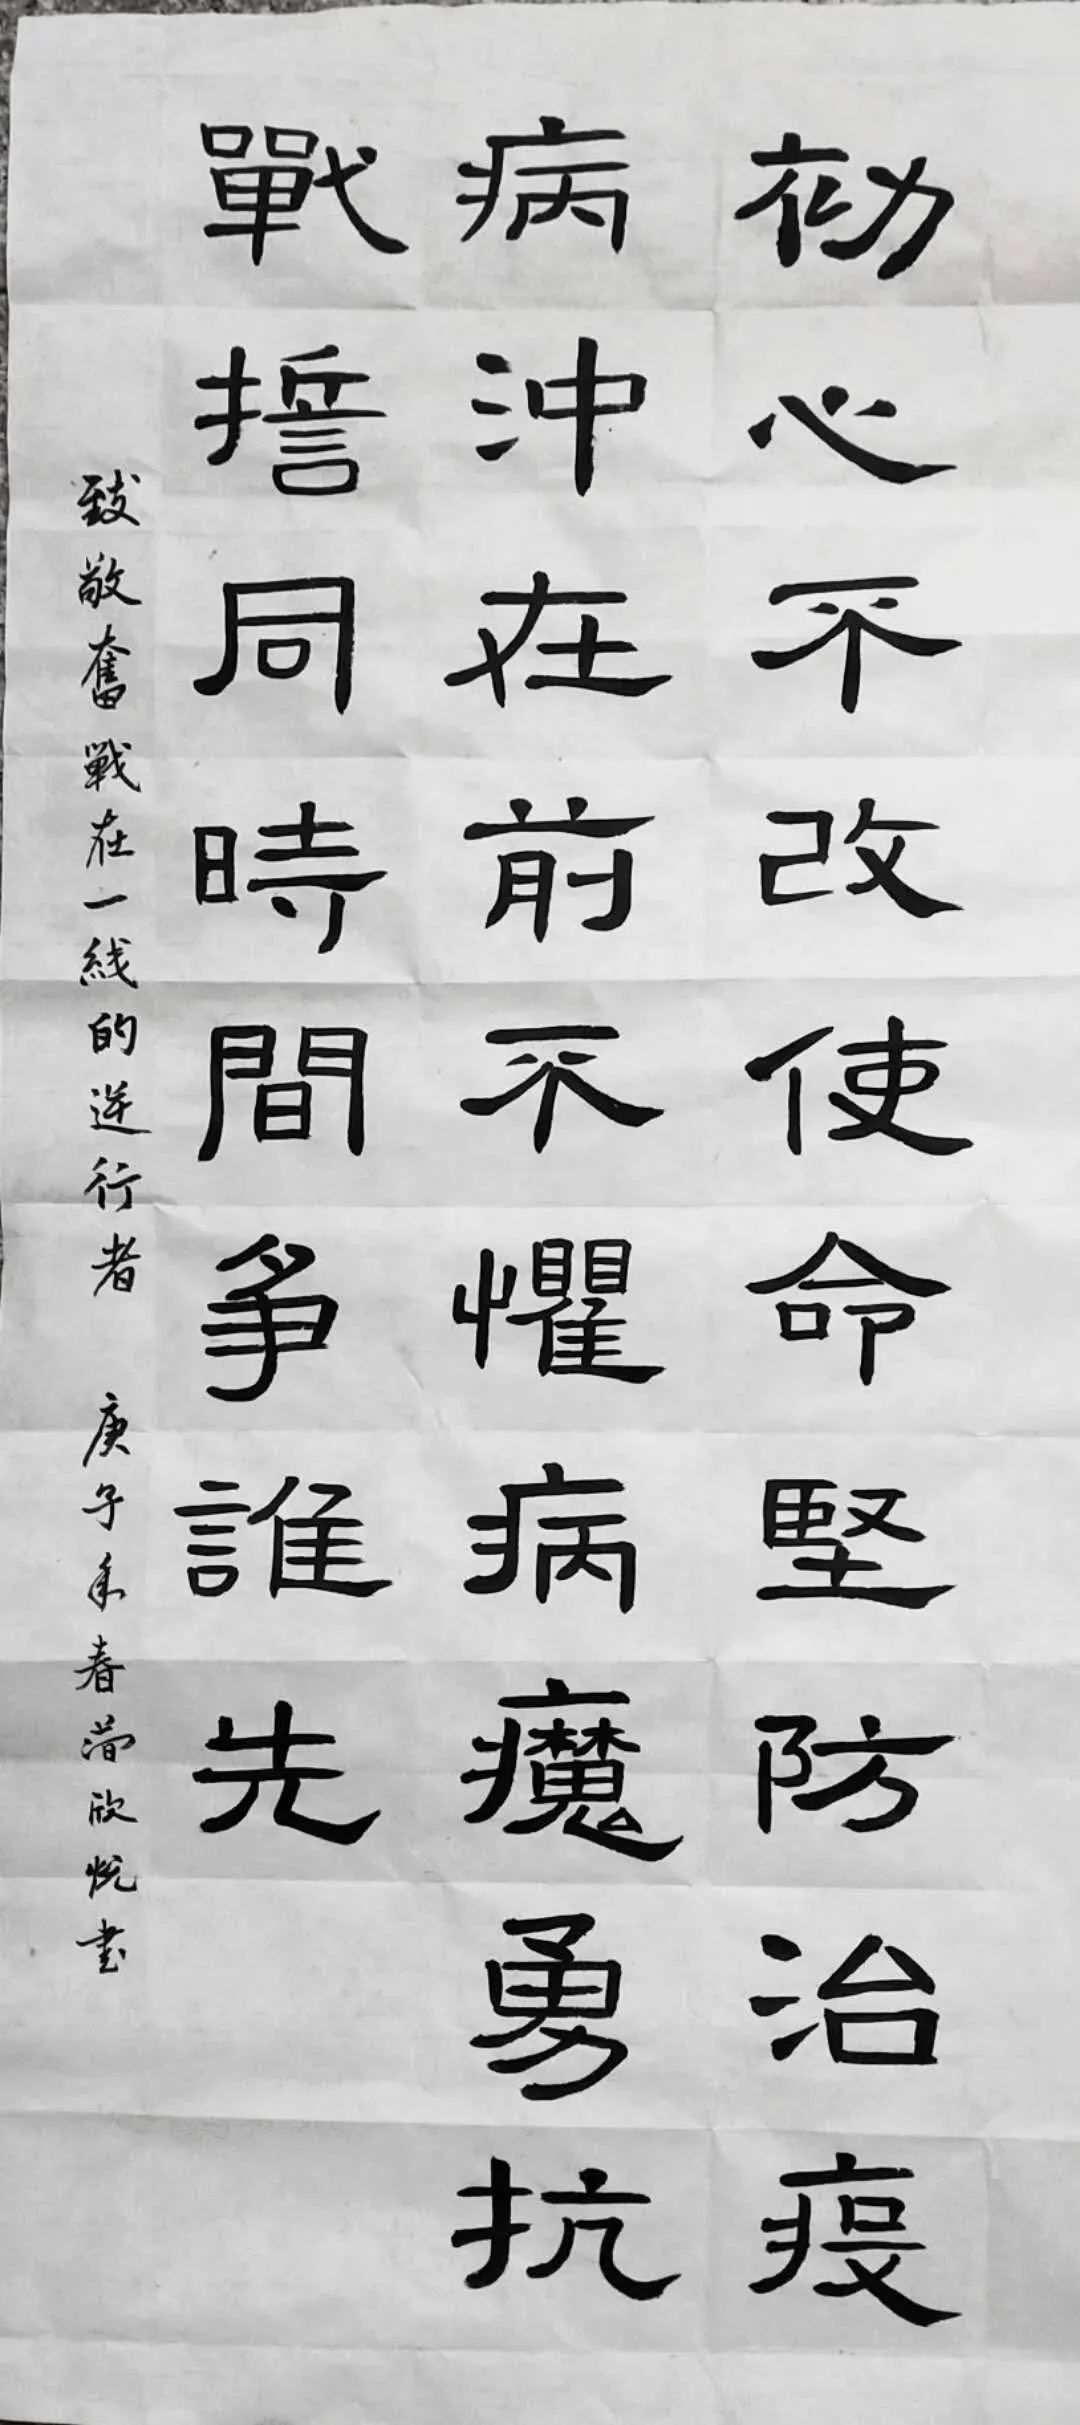 初心不改使命堅防治疫
病沖在前不懼病魔勇抗
戰誓同時間爭誰先
致敬奮戰在一线的逆行者 庚子年春 欣悦书